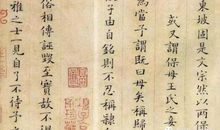 東坡固是文宗然以兩保
或又謂保母王氏之妾
為當子謂既曰母矣稱歸
子由自銘則不忍稱
俗相傳誑毀至寶故不
雅之士一見自了不待子